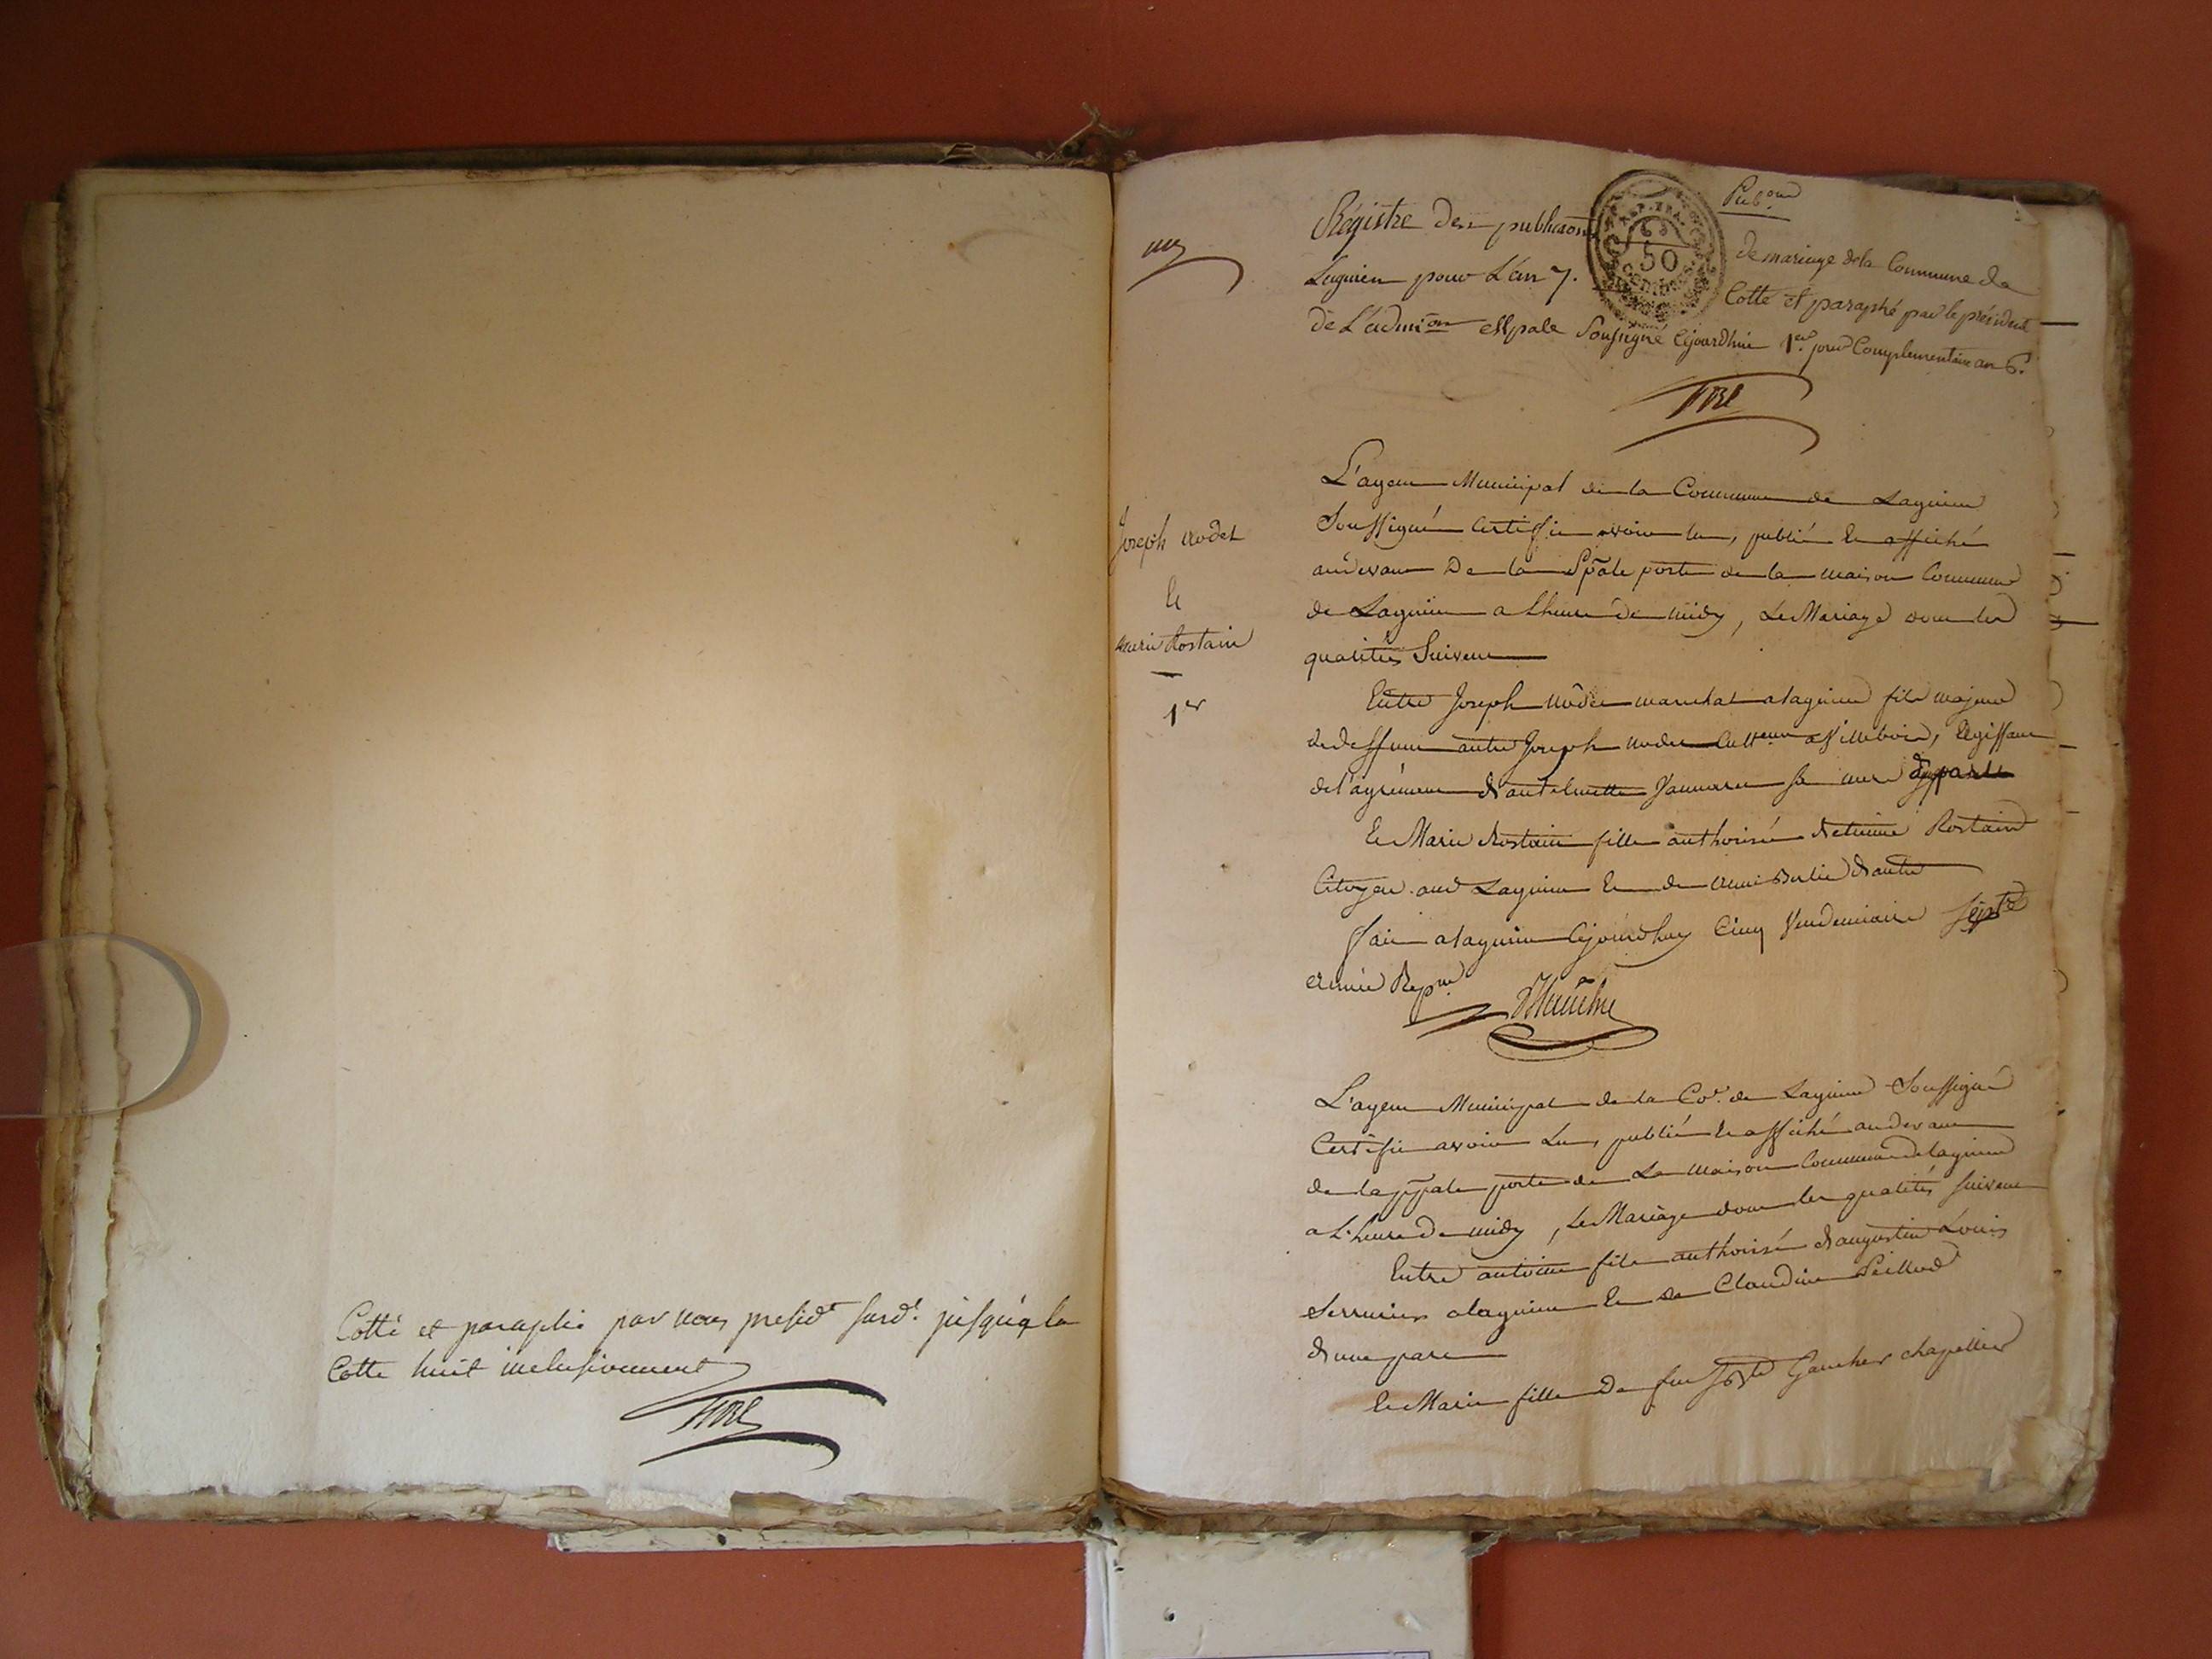 Cotté et paraphé par nous presidt susdt. jusqu'a la
Cotte huit inclusivement
Pubons
Régistre des publications
de mariage de la Commune de
Lagnieu pour L'an 7.
REP. FRA.
50
Cotté et paraphé par le président
de L'admion Mpale Soussigné Cejourdhui 1er. jour Complementaire an 6.
Joseph nodet
Et
marie Rostain
1er
L'agent Municipal de la Commune de Lagnieu
Soussigné Certifie avoir lu, publié Et affiché
audevant De la Ppale porte de la maison Commune
de Lagnieu a L'heure De midy, Le Mariage dont les
qualités Suivent
Entre Joseph Nodet marechal a lagnieu fils majeur
de deffunt autre Joseph nodet Cultteur a Villebois, Agissant
de l'agrément d'antelmette sa mere d'une part
Et Marie Rostain fille authorisée d'etienne Rostain
Citoyen aud Lagnieu Et de d'autre
fait a lagnieu Cejourdhuy Cinq Vendemiaire Septe
année Repne
L'agent Municipal de la Coe. de Lagnieu Soussigné
Certifie avoir Lu, publié Et affiché audevant
de la ppale porte de La maison Commune de lagnieu
a L'heure De midy, Le Mariage dont les qualités suivent
Entre antoine fils authorisé d'augustin Louis
Serrurier a lagnieu Et de Claudine Peillod
d'une part
Et Marie fille De feu Gaucher chapellier